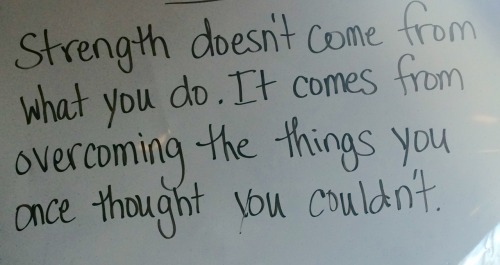 Strength doesn't come from
what you do. It comes from
overcoming the things you
once thought you couldn't.